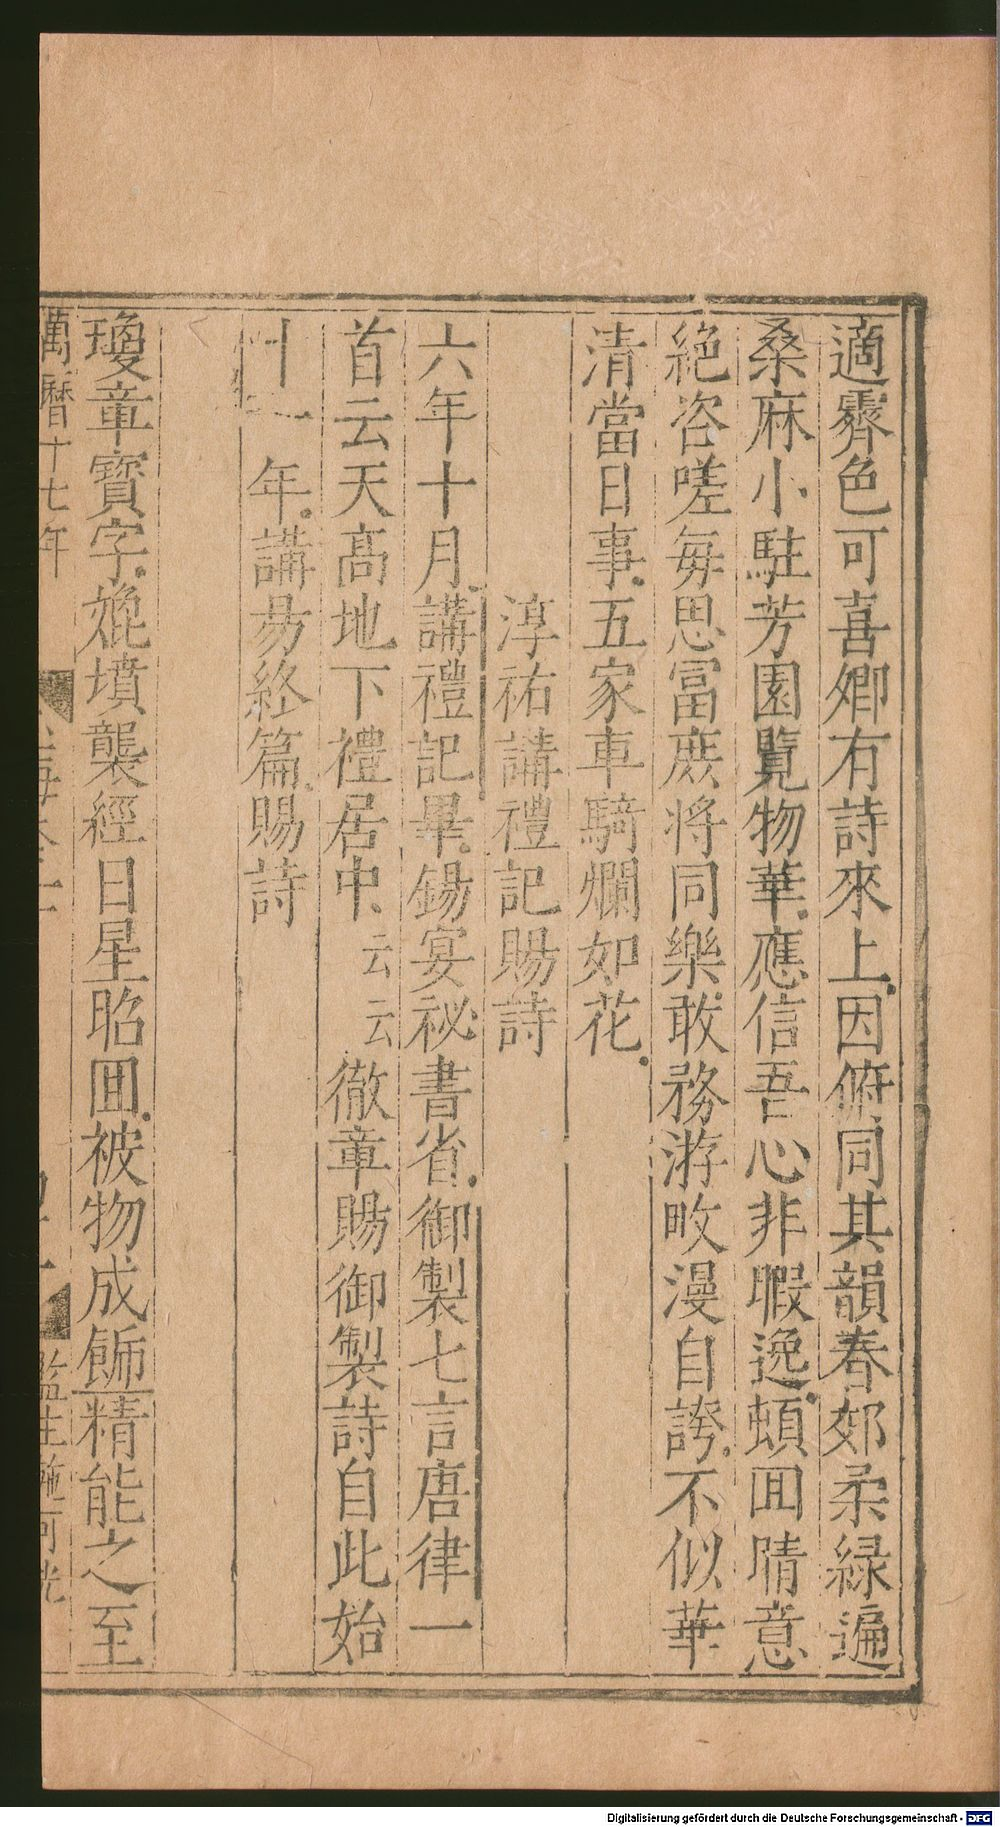 適霽色可喜卿有詩來上因俯同其韻春郊柔緑遍
桑麻小駐芳園覽物華應信吾心非暇逸頓囬晴意
絕咨嗟每思富庶將同樂敢務游畋漫自誇不似華
清當日事五家車騎爛如花
淳祐講禮記賜詩
六年十月講禮記畢錫宴祕書省御製七言唐律一
首云天高地下禮居中云云徹章賜御製詩自此始
十一年講易終篇賜詩
瓊章寳字㲋墳襲經日星昭囬被物成餙精能之至
萬曆十七年
玉海卷三
監生施可
Digitalisierung gefördert durch die Deutsche Forschungsgemeinschaft - DFG